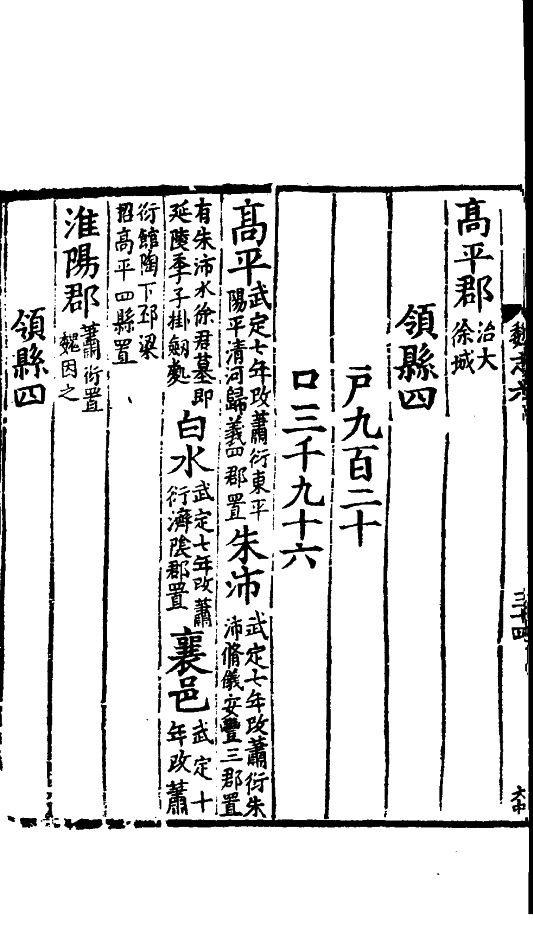 魏志六
三十四
大中
高平郡治大徐城
領縣四
戸九百二十
口三千九十六
高平武定七年改蕭衍東平陽平清河歸義四郡置朱沛武定七年改蕭衍朱沛脩儀安豐三郡置
有朱沛水徐君墓即延陵季子掛劒處白水武定七年改蕭衍濟陰郡置襄邑武定十年改蕭
衍館陶下邳梁招高平四縣置
淮陽郡蕭衍置魏因之
領縣四